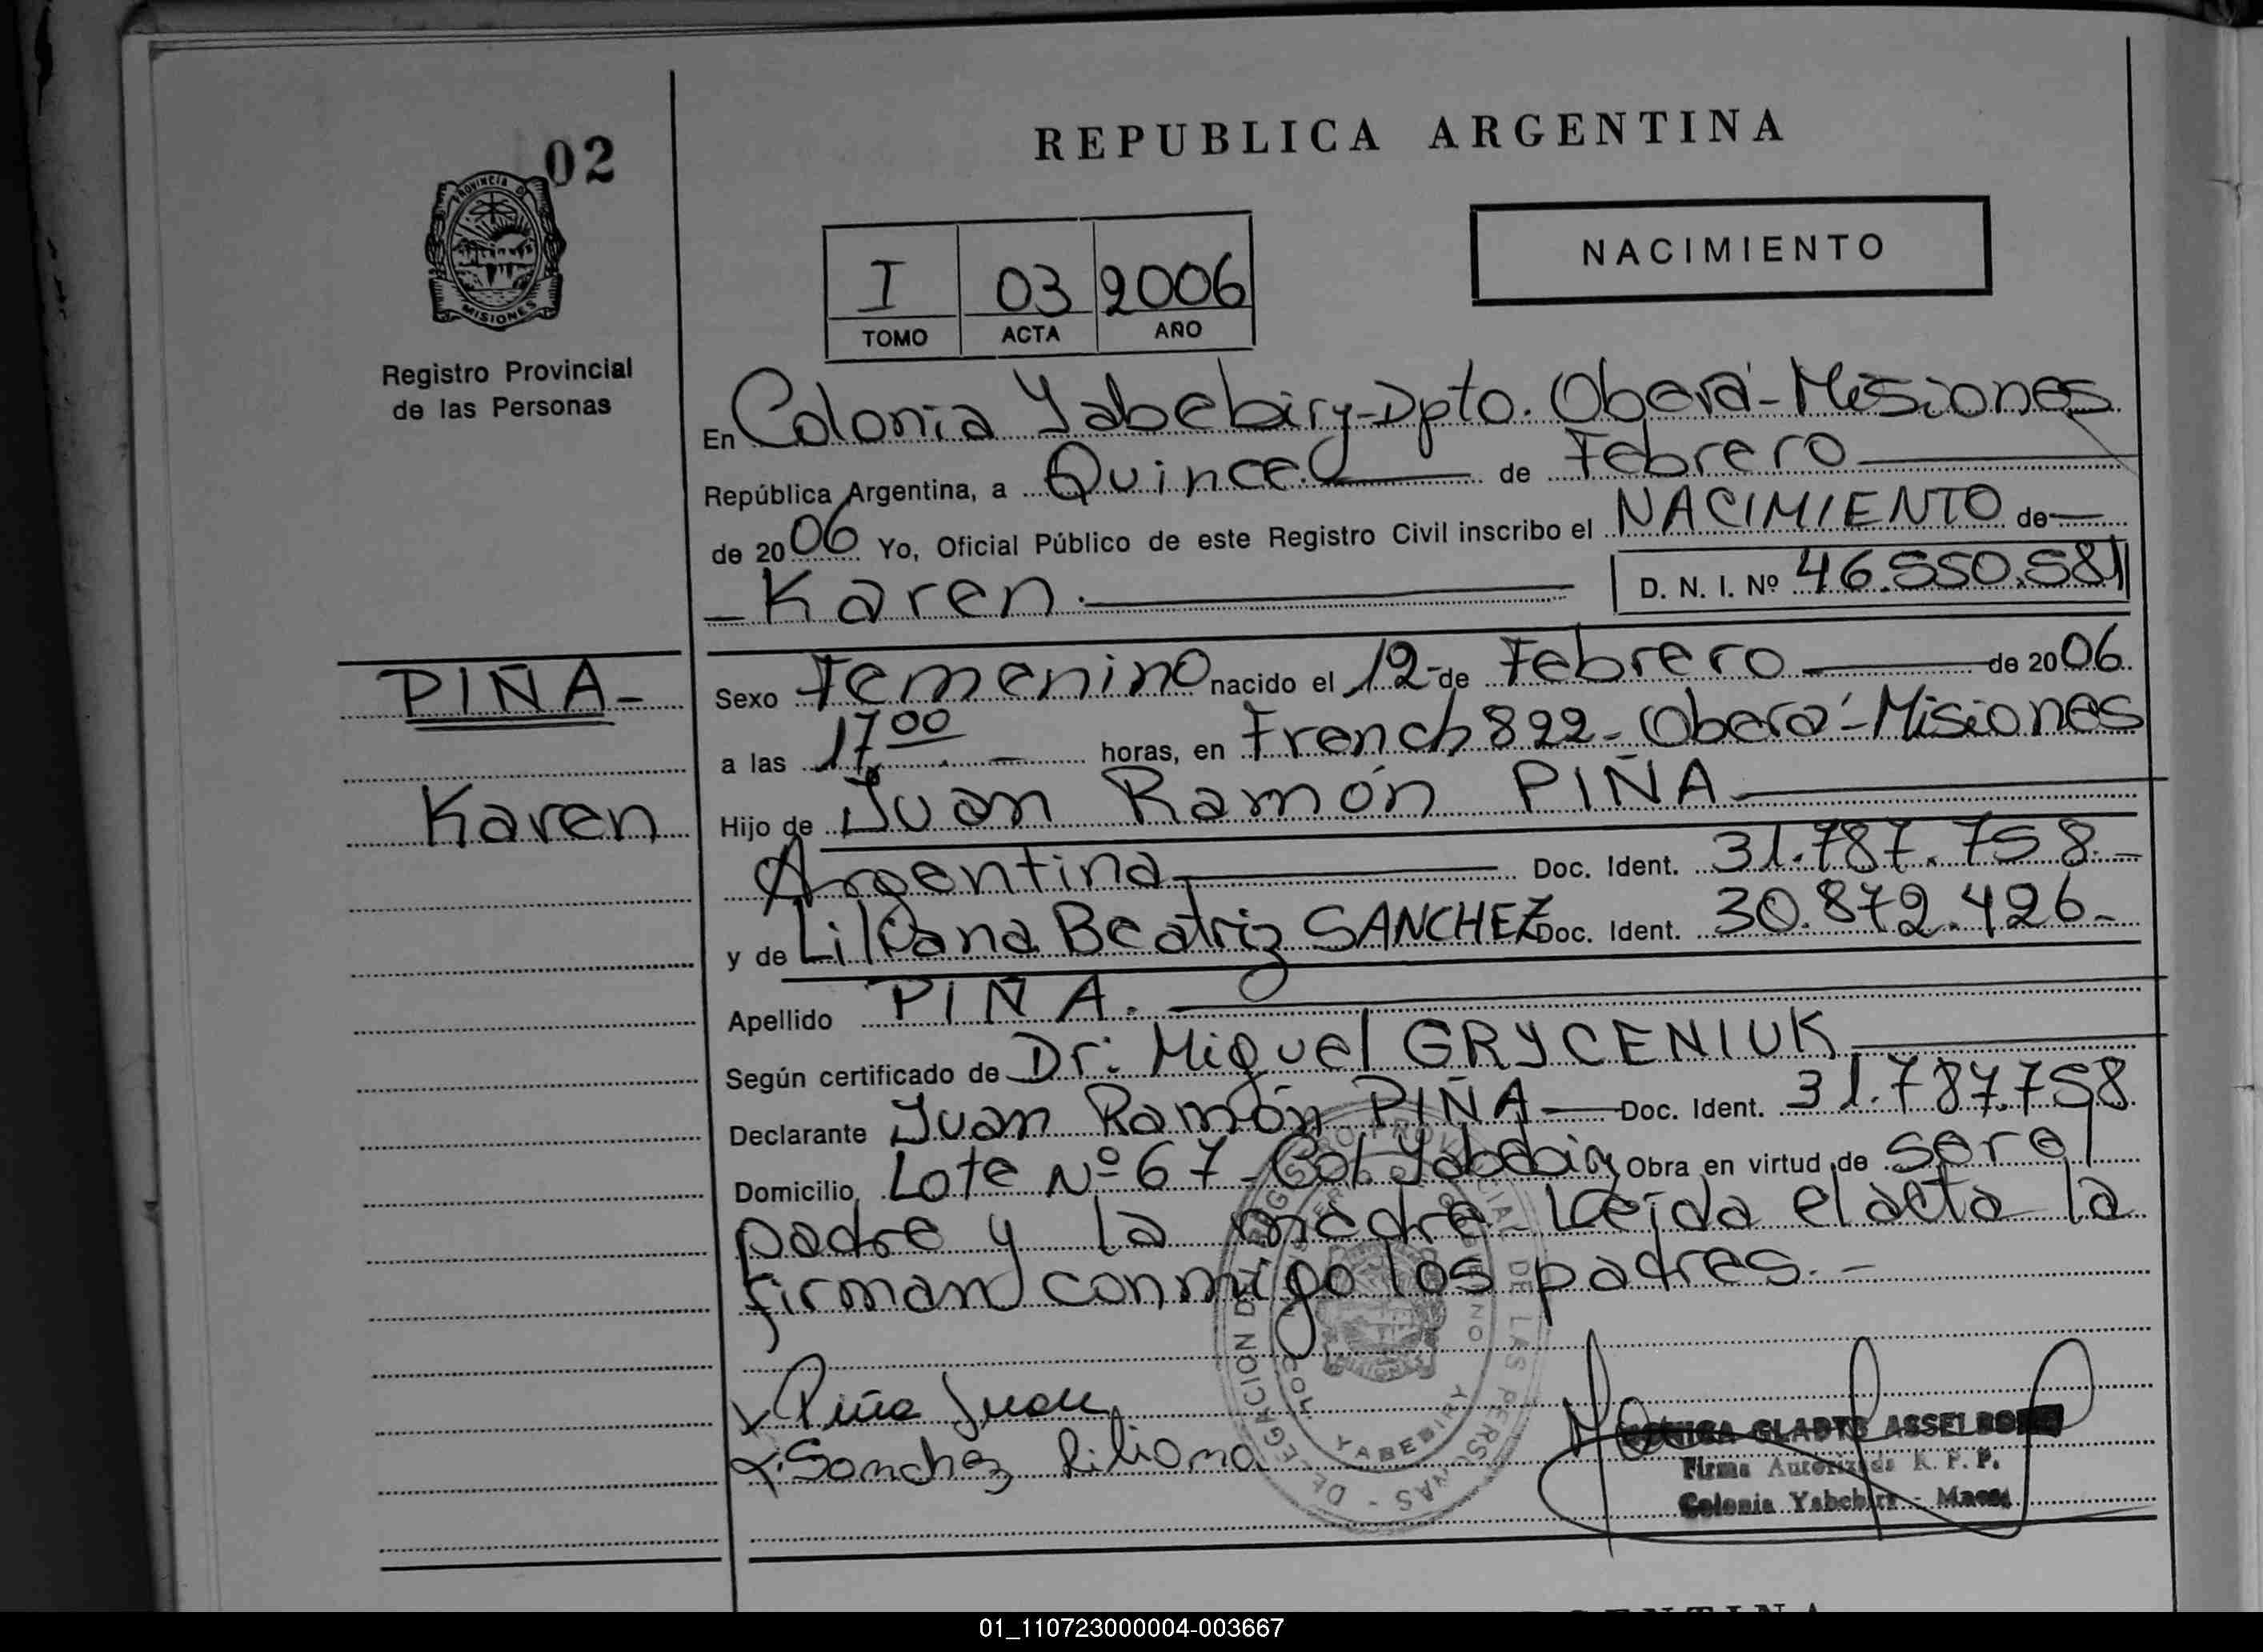 02
REPUBLICA ARGENTINA
PROVINCIA DE
MISIONES
NACIMIENTO
I 03 2006
TOMO ACTA AÑO
Registro Provincial
de las Personas
En Colonia Yabebiry-Dpto. Oberá-Misiones
República Argentina, a Quince. de Febrero
de 2006 Yo, Oficial Público de este Registro Civil inscribo el NACIMIENTO de
Karen. D. N. I. Nº 46.550.581
PIÑA-
Sexo Femenino nacido el 12 de Febrero de 2006.
a las 17⁰⁰ horas, en French 822- Oberá-Misiones
Karen
Hijo de Juan Ramón PIÑA
Argentina Doc. Ident. 31.787.758.-
y de Liliana Beatriz SANCHEZ Doc. Ident. 30.872.426-
Apellido PIÑA.
Según certificado de Dr: Miguel GRYCENIUK
Declarante Juan Ramón PIÑA Doc. Ident. 31.787.758
Domicilio Lote Nº 67 - Col. Yabebiry Obra en virtud de ser el
padre y la madre Leída el acta la
firman conmigo los padres.-
x Piña Juan
x Sanchez Liliana
GLADYS ASSELBORN
Firma Autorizada R. P. P.
Colonia Yabebiry - Mnes.
DELEGACION DEL REGISTRO PROVINCIAL DE LAS PERSONAS
YABEBIRY
01_110723000004-003667